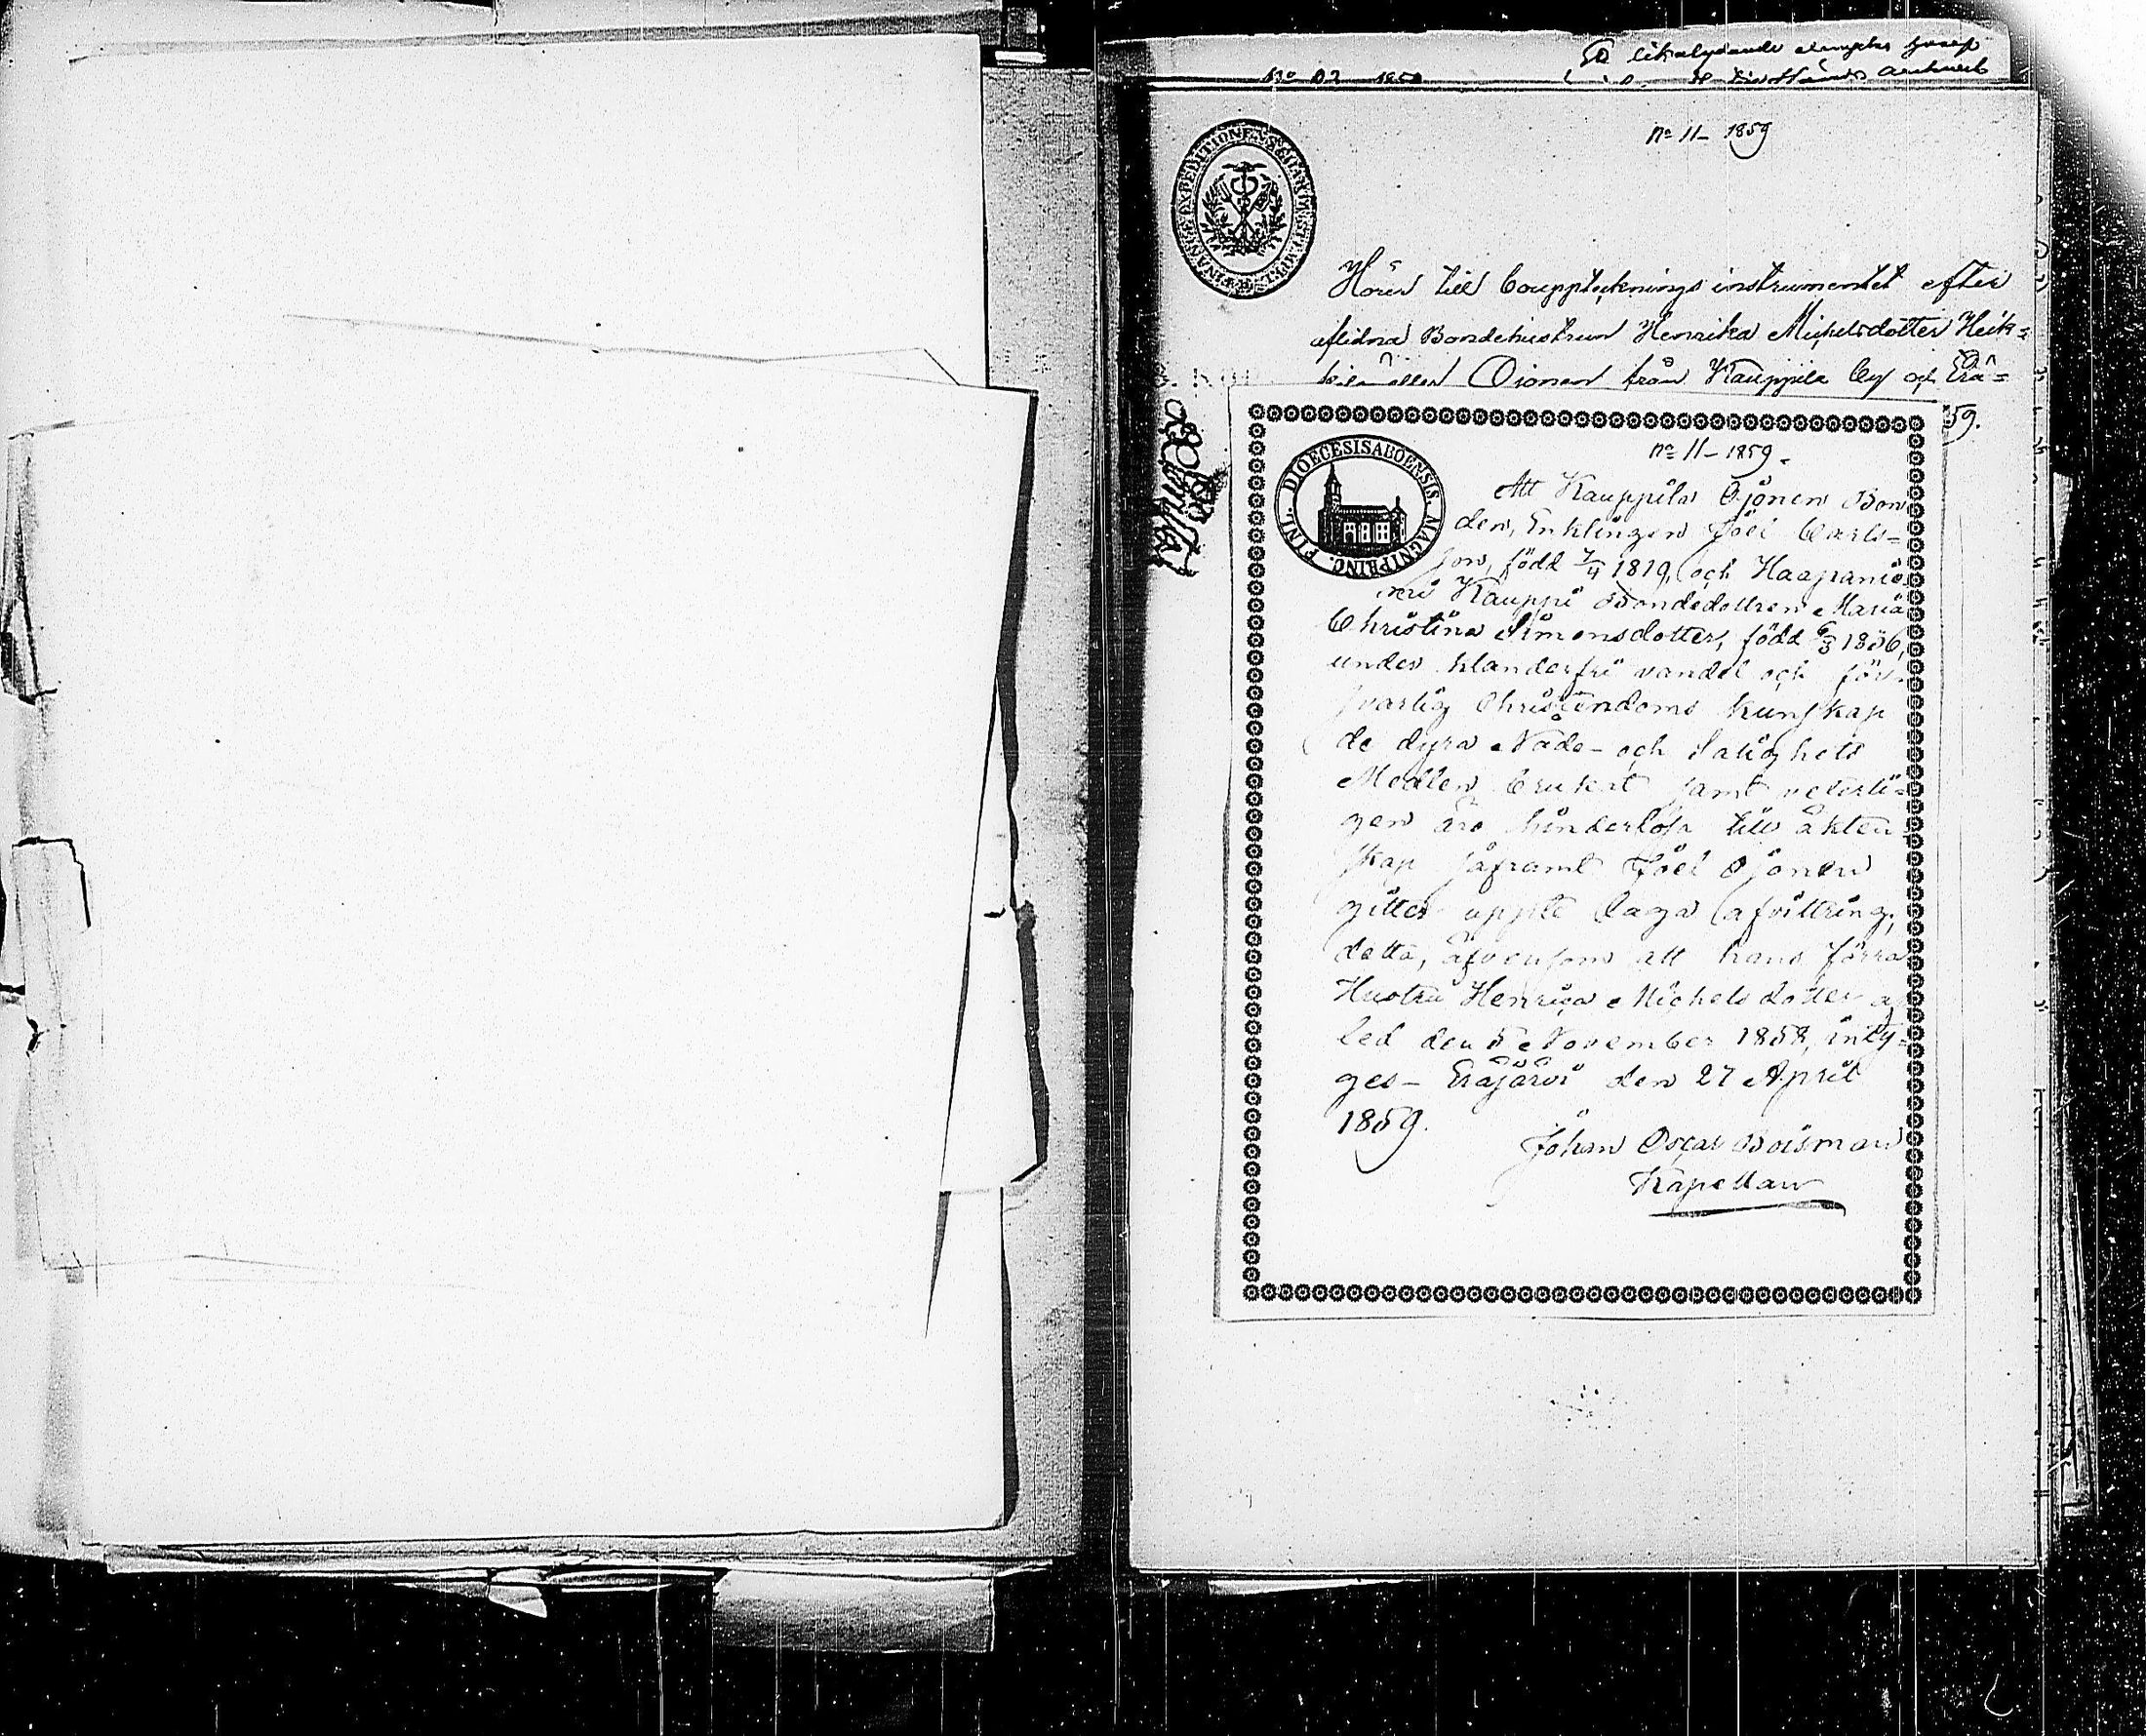 Et likalydande
No 11 – 1859
FINANCE EXPEDITIONENS CHARTÆ STEMPEL
Hörer till Bouppteknings instrumentet efter
aflidna Bondehustrun Henrika Michelsdotter Heik=
Ojonen från Kauppila By och Erä=
59.
FINL. DIOECESIS ABOENSIS. MAGNI PRINC.
No 11 – 1859.
Att Kauppila Ojonen Bon
den, Enklingen Joel Carls=
son, född 7/4 1819, och Haapanie
mi Kauppi Bondedottren Maria
Christina Simonsdotter, född 6/3 1836,
under klanderfri vandel och för=
svarlig Christendoms kunskap
de dyra Nåde- och Salighets
Medlen brukat samt veterli=
gen äro hinderlösa till äkten
skap såframt Joel Ojonen
gitter uppte laga afvittring,
detta, äfvensom att hans förra
Hustru Henrica Michelsdotter af
led den 5 November 1858, inty=
ges – Eräjärvi den 27 April
1859.
Johan Oscar Boisman
Kapellan